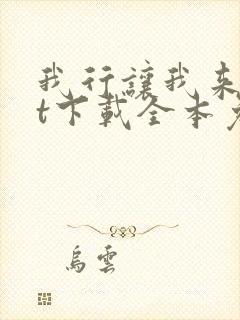 我行讓我來
t下載全本免
烏雲